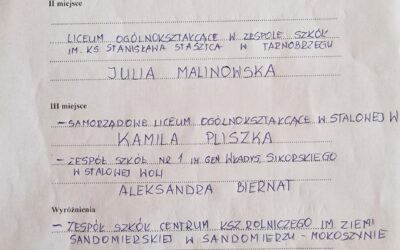 II miejsce
LICEUM OGÓLNOKSZTAŁCĄCE W ZESPOLE SZKÓŁ
IM. KS STANISŁAWA STASZICA W TARNOBRZEGU
JULIA MALINOWSKA
III miejsce
– SAMORZĄDOWE LICEUM OGÓLNOKSZTAŁCĄCE W STALOWEJ W
KAMILA PLISZKA
– ZESPÓŁ SZKÓŁ NR 1 IM GEN WŁADYS. SIKORSKIEGO
W STALOWEJ WOLI
ALEKSANDRA BIERNAT
Wyróżnienia
– ZESPÓŁ SZKÓŁ CENTRUM KSZ. ROLNICZEGO IM ZIEMI
SANDOMIERSKIEJ W SANDOMIERZU - MOKOSZYNIE